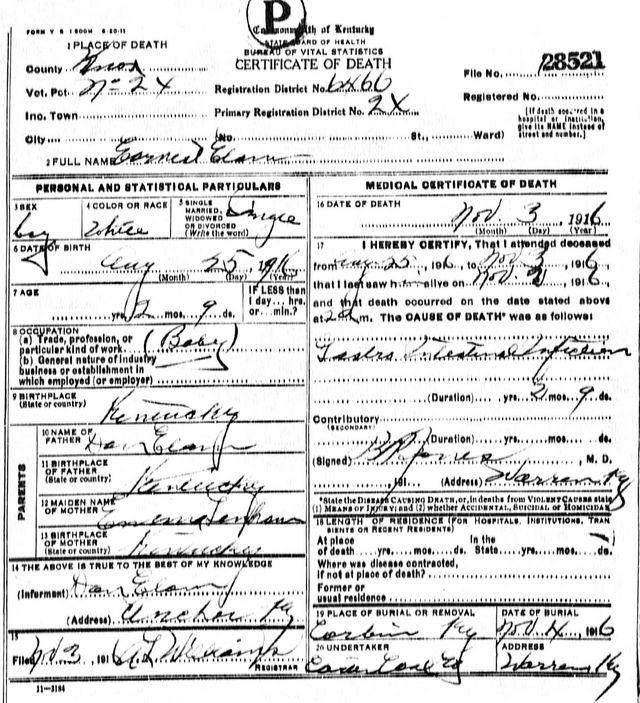 P
FORM V S 1 500M 5-20-11
Commonwealth of Kentucky
STATE BOARD OF HEALTH
BUREAU OF VITAL STATISTICS
CERTIFICATE OF DEATH
1 PLACE OF DEATH
County Knox
Vot. Pct. No 24
Inc. Town
City
Registration District No. 6466
Primary Registration District No. 24
(No. St., Ward)
File No. 28521
Registered No.
[If death occurred in a hospital or institution, give its NAME instead of street and number.]
2 FULL NAME Earnest Elam
PERSONAL AND STATISTICAL PARTICULARS
3 SEX boy
4 COLOR OR RACE White
5 SINGLE MARRIED, WIDOWED OR DIVORCED (Write the word) Single
6 DATE OF BIRTH Aug 25 1916
(Month) (Day) (Year)
7 AGE
yrs. 2 mos. 9 ds.
IF LESS than 1 day... hrs. or... min.?
8 OCCUPATION
(a) Trade, profession, or particular kind of work (Baby)
(b) General nature of industry business or establishment in which employed (or employer)
9 BIRTHPLACE (State or country) Kentucky
PARENTS
10 NAME OF FATHER Dan Elam
11 BIRTHPLACE OF FATHER (State or country) Kentucky
12 MAIDEN NAME OF MOTHER
13 BIRTHPLACE OF MOTHER (State or country) Kentucky
14 THE ABOVE IS TRUE TO THE BEST OF MY KNOWLEDGE
(Informant) Dan Elam
(Address) Anchor Ky
15
Filed Nov 3, 191 6 A L Williams
REGISTRAR
11-3184
MEDICAL CERTIFICATE OF DEATH
16 DATE OF DEATH
Nov 3 1916
(Month) (Day) (Year)
17 I HEREBY CERTIFY, That I attended deceased
from Aug 25, 1916, to Nov 3, 1916
that I last saw h alive on Nov 2, 1916
and that death occurred on the date stated above
at m. The CAUSE OF DEATH* was as follows:
Gastro Intestinal Infection
(Duration) yrs. 2 mos. 9 ds.
Contributory
(SECONDARY)
(Duration) yrs. mos. ds.
(Signed) Jones, M. D.
, 191 (Address) Warren Ky
*State the DISEASE CAUSING DEATH, or, in deaths from VIOLENT CAUSES state
(1) MEANS OF INJURY; and (2) whether ACCIDENTAL, SUICIDAL or HOMICIDAL
18 LENGTH OF RESIDENCE (FOR HOSPITALS, INSTITUTIONS, TRANSIENTS OR RECENT RESIDENTS)
At place of death yrs. mos. ds. In the State yrs. mos. ds.
Where was disease contracted,
if not at place of death?
Former or
usual residence
19 PLACE OF BURIAL OR REMOVAL Corbin Ky
DATE OF BURIAL Nov 4, 1916
20 UNDERTAKER
ADDRESS Warren Ky